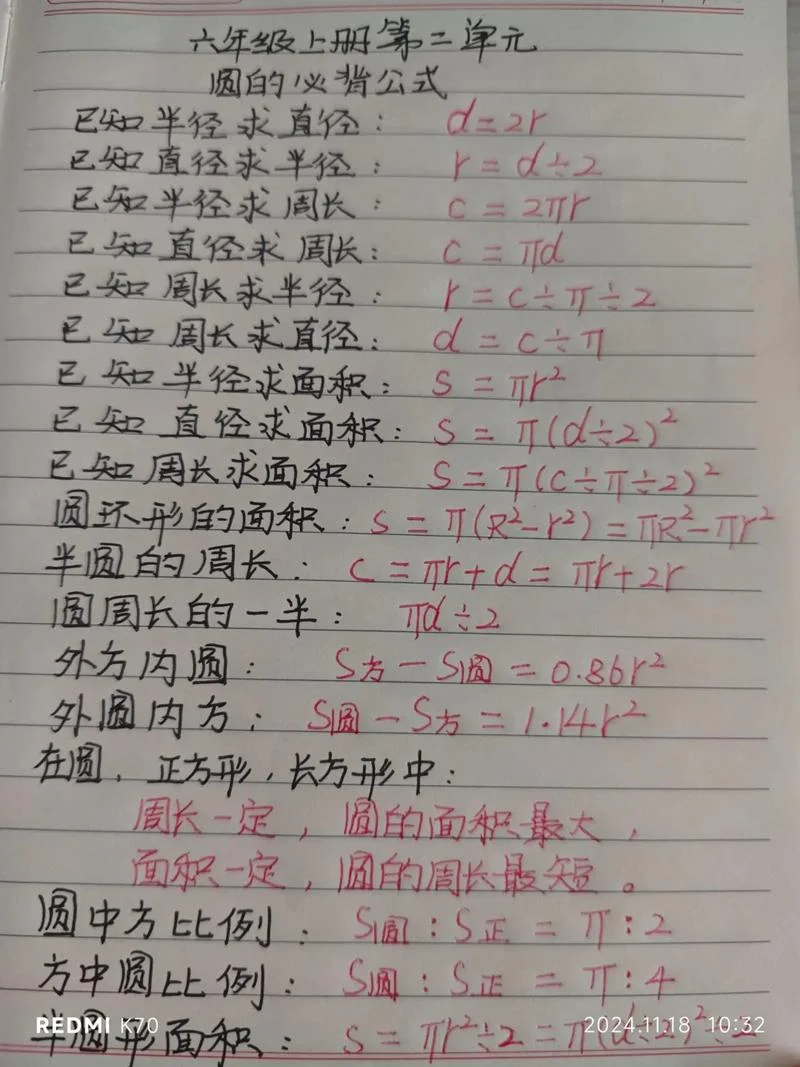 六年级上册第二单元
圆的必背公式
已知半径求直径: d=2r
已知直径求半径: r=d÷2
已知半径求周长: c=2πr
已知直径求周长: c=πd
已知周长求半径: r=c÷π÷2
已知周长求直径: d=c÷π
已知半径求面积: s=πr²
已知直径求面积: s=π(d÷2)²
已知周长求面积: s=π(c÷π÷2)²
圆环形的面积: s=π(R²-r²)=πR²-πr²
半圆的周长: c=πr+d=πr+2r
圆周长的一半: πd÷2
外方内圆: S方-S圆=0.86r²
外圆内方: S圆-S方=1.14r²
在圆,正方形,长方形中:
周长一定,圆的面积最大,
面积一定,圆的周长最短。
圆中方比例: S圆:S正=π:2
方中圆比例: S圆:S正=π:4
半圆形面积: s=πr²÷2=π(d÷2)²÷2
REDMI K70 2024.11.18 10:32